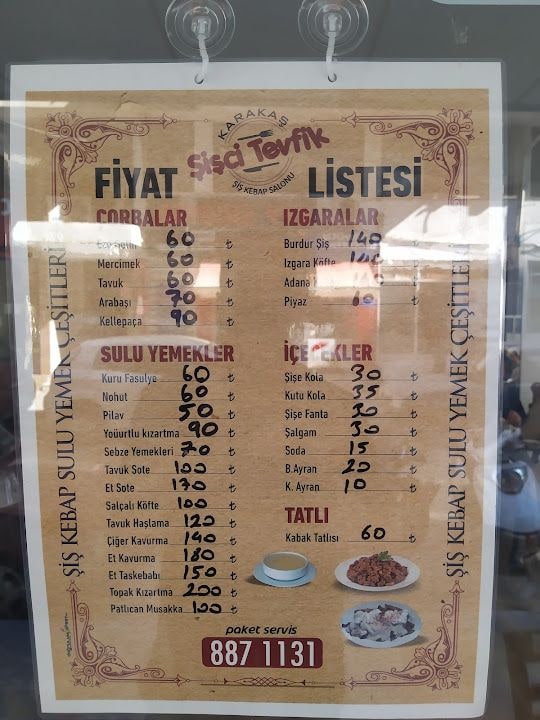 KARAKAŞ
Şişci Tevfik
ŞİŞ KEBAP SALONU
FİYAT LİSTESİ
ÇORBALAR
60 ₺
Mercimek 60 ₺
Tavuk 60 ₺
Arabaşı 70 ₺
Kellepaça 90 ₺
SULU YEMEKLER
Kuru Fasulye 60 ₺
Nohut 60 ₺
Pilav 50 ₺
Yoüurtlu kızartma 90 ₺
Sebze Yemekleri 70 ₺
Tavuk Sote 100 ₺
Et Sote 170 ₺
Salçalı Köfte 100 ₺
Tavuk Haşlama 120 ₺
Çiğer Kavurma 140 ₺
Et Kavurma 180 ₺
Et Taskebabı 150 ₺
Topak Kızartma 200 ₺
Patlıcan Musakka 100 ₺
IZGARALAR
Burdur Şiş 140 ₺
Izgara Köfte 140 ₺
Adana ₺
Piyaz ₺
İÇECEKLER
Şişe Kola 30 ₺
Kutu Kola 35 ₺
Şişe Fanta 30 ₺
Şalgam 30 ₺
Soda 15 ₺
B.Ayran 20 ₺
K. Ayran 10 ₺
TATLI
Kabak Tatlısı 60 ₺
paket servis
887 1131
ŞİŞ KEBAP SULU YEMEK ÇEŞİTLERİ
ŞİŞ KEBAP SULU YEMEK ÇEŞİTLERİ